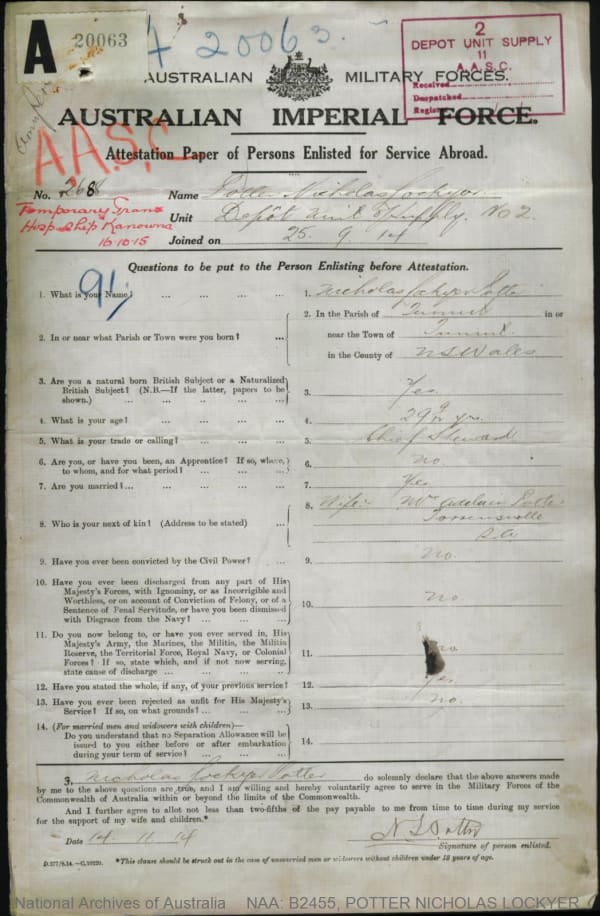 A 20063
A 20063.
2
DEPOT UNIT SUPPLY
11
A.A.S.C.
Received
Despatched
Regist
AUSTRALIAN MILITARY FORCES.
AUSTRALIAN IMPERIAL FORCE.
A.A.S.C.
Attestation Paper of Persons Enlisted for Service Abroad.
No. 2688 Name Potter Nicholas Lockyer
Temporary Trans
Hosp Ship Kanowna
16.10.15
Unit Depôt Unit of Supply. No 2.
Joined on 25. 9. 14
Questions to be put to the Person Enlisting before Attestation.
91
1. What is your Name? ... ... ... ... 1. Nicholas Lockyer Potter
2. In or near what Parish or Town were you born? ... 2. In the Parish of Tumut in or
near the Town of Tumut
in the County of N S Wales
3. Are you a natural born British Subject or a Naturalized
British Subject? (N.B.—If the latter, papers to be
shown.) ... ... ... ... ... 3. Yes.
4. What is your age? ... ... ... ... 4. 29 yrs.
5. What is your trade or calling? ... ... ... 5. Chief Steward
6. Are you, or have you been, an Apprentice? If so, where,
to whom, and for what period? ... ... ... 6. no
7. Are you married? ... ... ... ... 7. Yes
8. Who is your next of kin? (Address to be stated) ... 8. Wife: Mrs Potter
Torrensville
S.A
9. Have you ever been convicted by the Civil Power? ... 9. no.
10. Have you ever been discharged from any part of His
Majesty's Forces, with Ignominy, or as Incorrigible and
Worthless, or on account of Conviction of Felony, or of a
Sentence of Penal Servitude, or have you been dismissed
with Disgrace from the Navy? ... ... ... 10. no
11. Do you now belong to, or have you ever served in, His
Majesty's Army, the Marines, the Militia, the Militia
Reserve, the Territorial Force, Royal Navy, or Colonial
Forces? If so, state which, and if not now serving,
state cause of discharge ... ... ... ... 11. no
12. Have you stated the whole, if any, of your previous service? 12. Yes.
13. Have you ever been rejected as unfit for His Majesty's
Service? If so, on what grounds? ... ... ... 13. no.
14. (For married men and widowers with children)—
Do you understand that no Separation Allowance will be
issued to you either before or after embarkation
during your term of service? ... ... ... 14.
I, Nicholas Lockyer Potter do solemnly declare that the above answers made
by me to the above questions are true, and I am willing and hereby voluntarily agree to serve in the Military Forces of the
Commonwealth of Australia within or beyond the limits of the Commonwealth.
And I further agree to allot not less than two-fifths of the pay payable to me from time to time during my service
for the support of my wife and children.*
Date 14. 11. 14 N L Potter
Signature of person enlisted.
D.377/9.14.—C.10220. *This clause should be struck out in the case of unmarried men or widowers without children under 18 years of age.
National Archives of Australia NAA: B2455, POTTER NICHOLAS LOCKYER